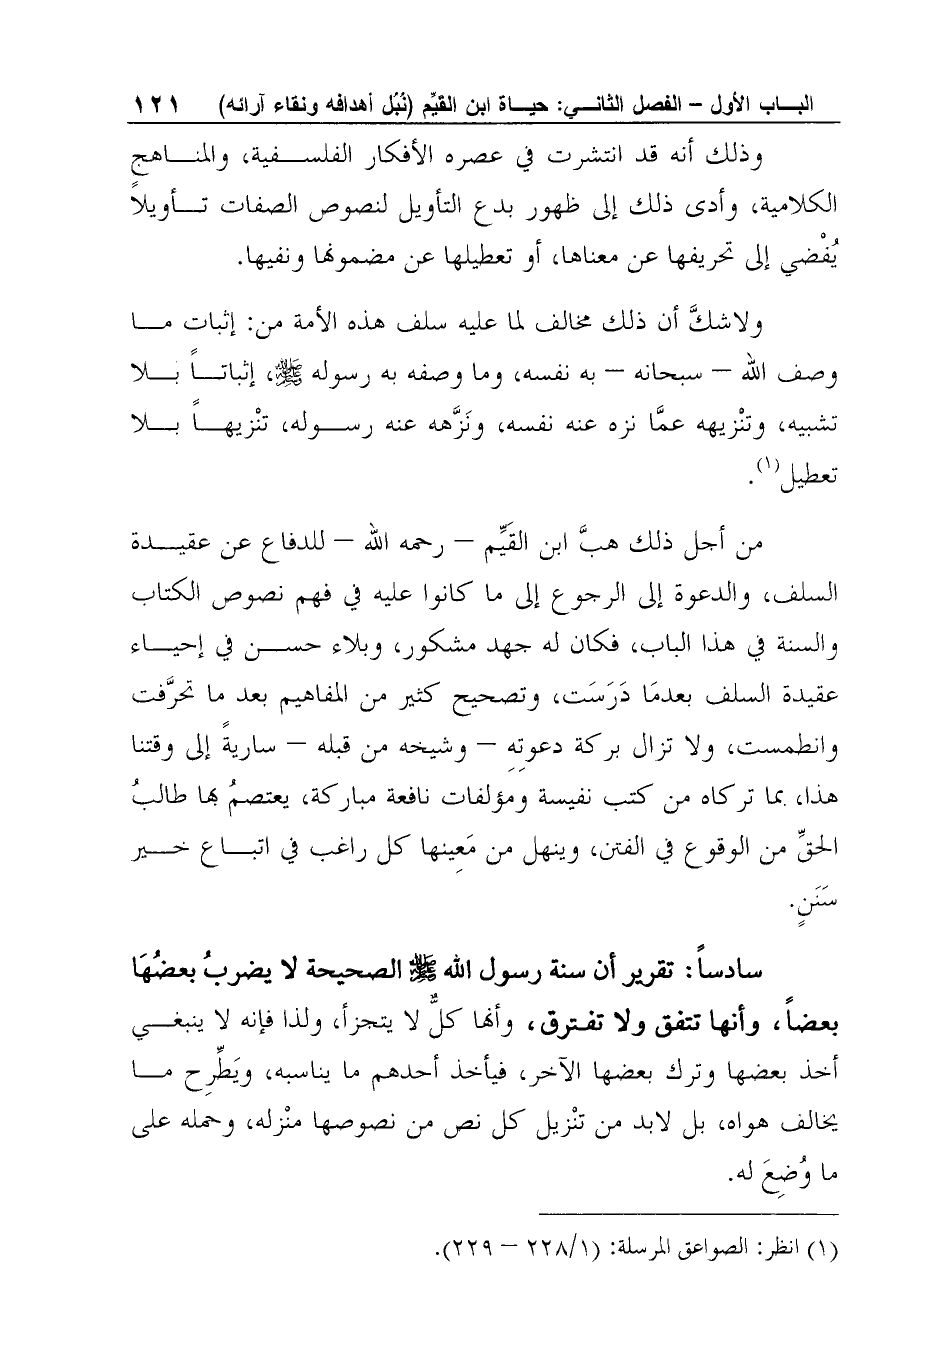 الباب الأول – الفصل الثاني: حياة ابن القيِّم (نُبُل أهدافه ونقاء آرائه) ١٢١
وذلك أنه قد انتشرت في عصره الأفكار الفلسفية، والمناهج
الكلامية، وأدى ذلك إلى ظهور بدع التأويل لنصوص الصفات تأويلاً
يُفْضي إلى تحريفها عن معناها، أو تعطيلها عن مضمونها ونفيها.
ولاشكَّ أن ذلك مخالف لما عليه سلف هذه الأمة من: إثبات ما
وصف الله – سبحانه – به نفسه، وما وصفه به رسوله ﷺ، إثباتاً بلا
تشبيه، وتنْزيهه عمَّا نزه عنه نفسه، ونَزَّهه عنه رسوله، تنْزيهاً بلا
تعطيل(١).
من أجل ذلك هبَّ ابن القَيِّم – رحمه الله – للدفاع عن عقيدة
السلف، والدعوة إلى الرجوع إلى ما كانوا عليه في فهم نصوص الكتاب
والسنة في هذا الباب، فكان له جهد مشكور، وبلاء حسن في إحياء
عقيدة السلف بعدمَا دَرَسَت، وتصحيح كثير من المفاهيم بعد ما تحرَّفت
وانطمست، ولا تزال بركة دعوتِهِ – وشيخه من قبله – ساريةً إلى وقتنا
هذا، بما تركاه من كتب نفيسة ومؤلفات نافعة مباركة، يعتصمُ بها طالبُ
الحقِّ من الوقوع في الفتن، وينهل من مَعِينها كل راغب في اتباع خير
سَنَنٍ.
سادساً: تقرير أن سنة رسول الله ﷺ الصحيحة لا يضربُ بعضُهَا
بعضاً، وأنها تتفق ولا تفترق، وأنها كلٌّ لا يتجزأ، ولذا فإنه لا ينبغي
أخذ بعضها وترك بعضها الآخر، فيأخذ أحدهم ما يناسبه، ويَطَّرِح ما
يخالف هواه، بل لابد من تنْزيل كل نص من نصوصها منْزله، وحمله على
ما وُضِعَ له.
(١) انظر: الصواعق المرسلة: (٢٢٨/١ – ٢٢٩).